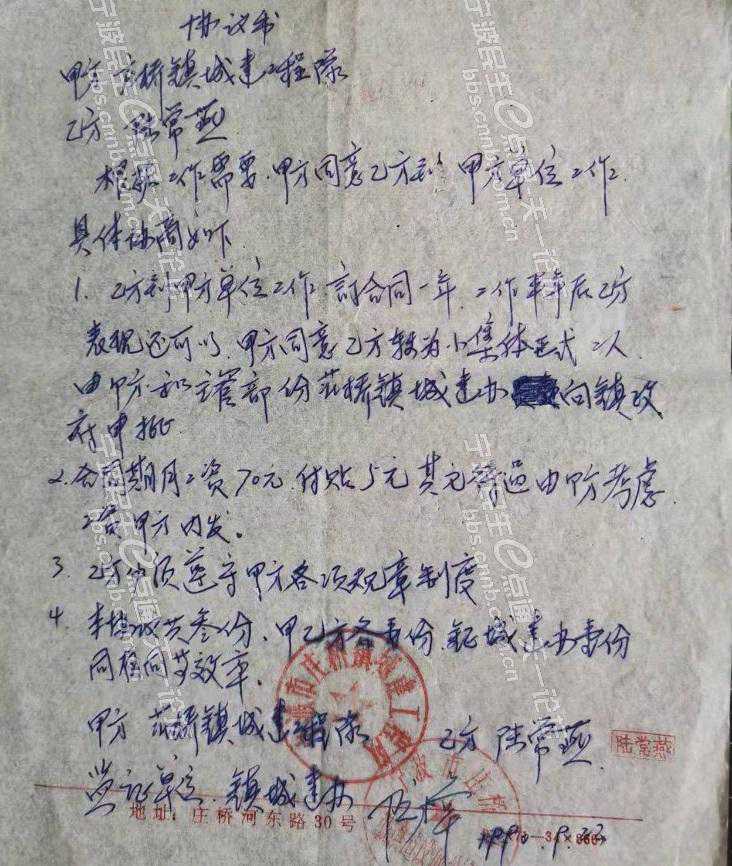 协议书
甲方 庄桥镇城建工程队
乙方 陆常燕
根据工作需要,甲方同意乙方到 甲方单位工作.
具体协商如下
1. 乙方到甲方单位工作,订合同一年,工作半年后乙方
表现还可以,甲方同意乙方转为小集体正式工人
由甲方和主管部份庄桥镇城建办 向镇政
府申批
2. 合同期月工资70元,付贴5元其它待遇由甲方考虑.
工资甲方内发。
3. 乙方必须遵守甲方各项规章制度
4. 本协议共叁份,甲乙方各壹份,镇城建办壹份
同样同等效率.
甲方 庄桥镇城建工程队 乙方 陆常燕.
陆常燕
市庄桥镇城建工程队
鉴证单位 镇城建办
宁波市
地址:庄桥河东路30号
宁波民生e点通 天一论坛
bbs.cnnb.com.cn
宁波民生e点通 天一论坛
bbs.cnnb.com.cn